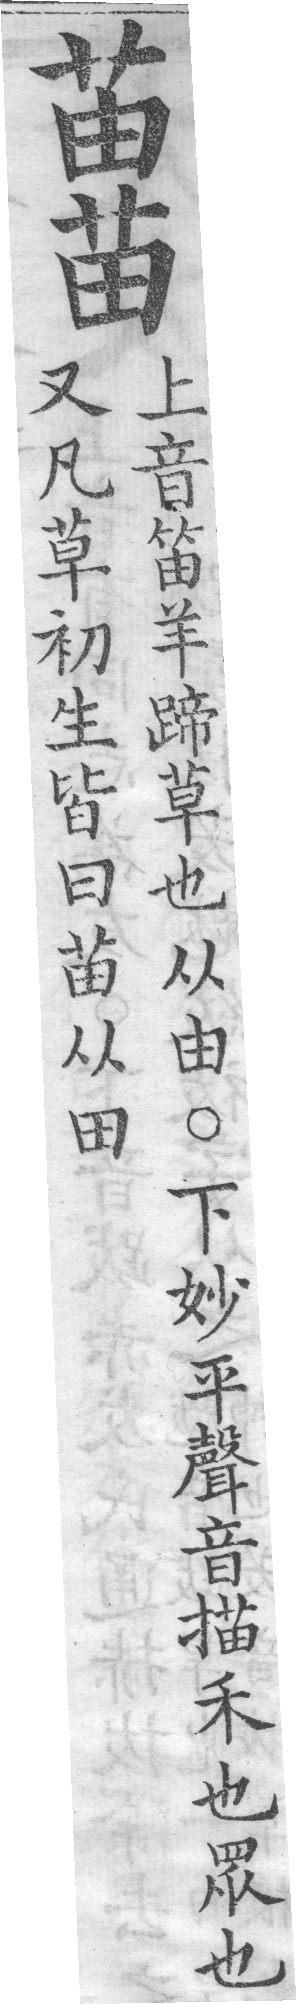 苖苗
上音笛羊蹄草也从由○下妙平聲音描禾也眾也
又凡草初生皆曰苗从田